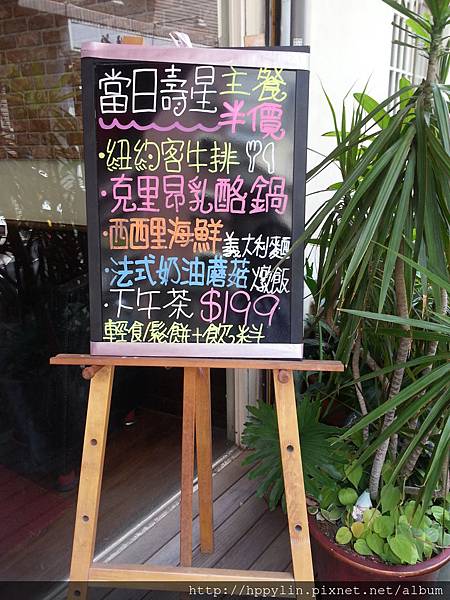 當日壽星主餐
半價
·紐約客牛排
·克里昂乳酪鍋
·西西里海鮮義大利麵
·法式奶油蘑菇燉飯
·下午茶 $199
輕食鬆餅+飲料
http://hppylin.pixnet.net/album